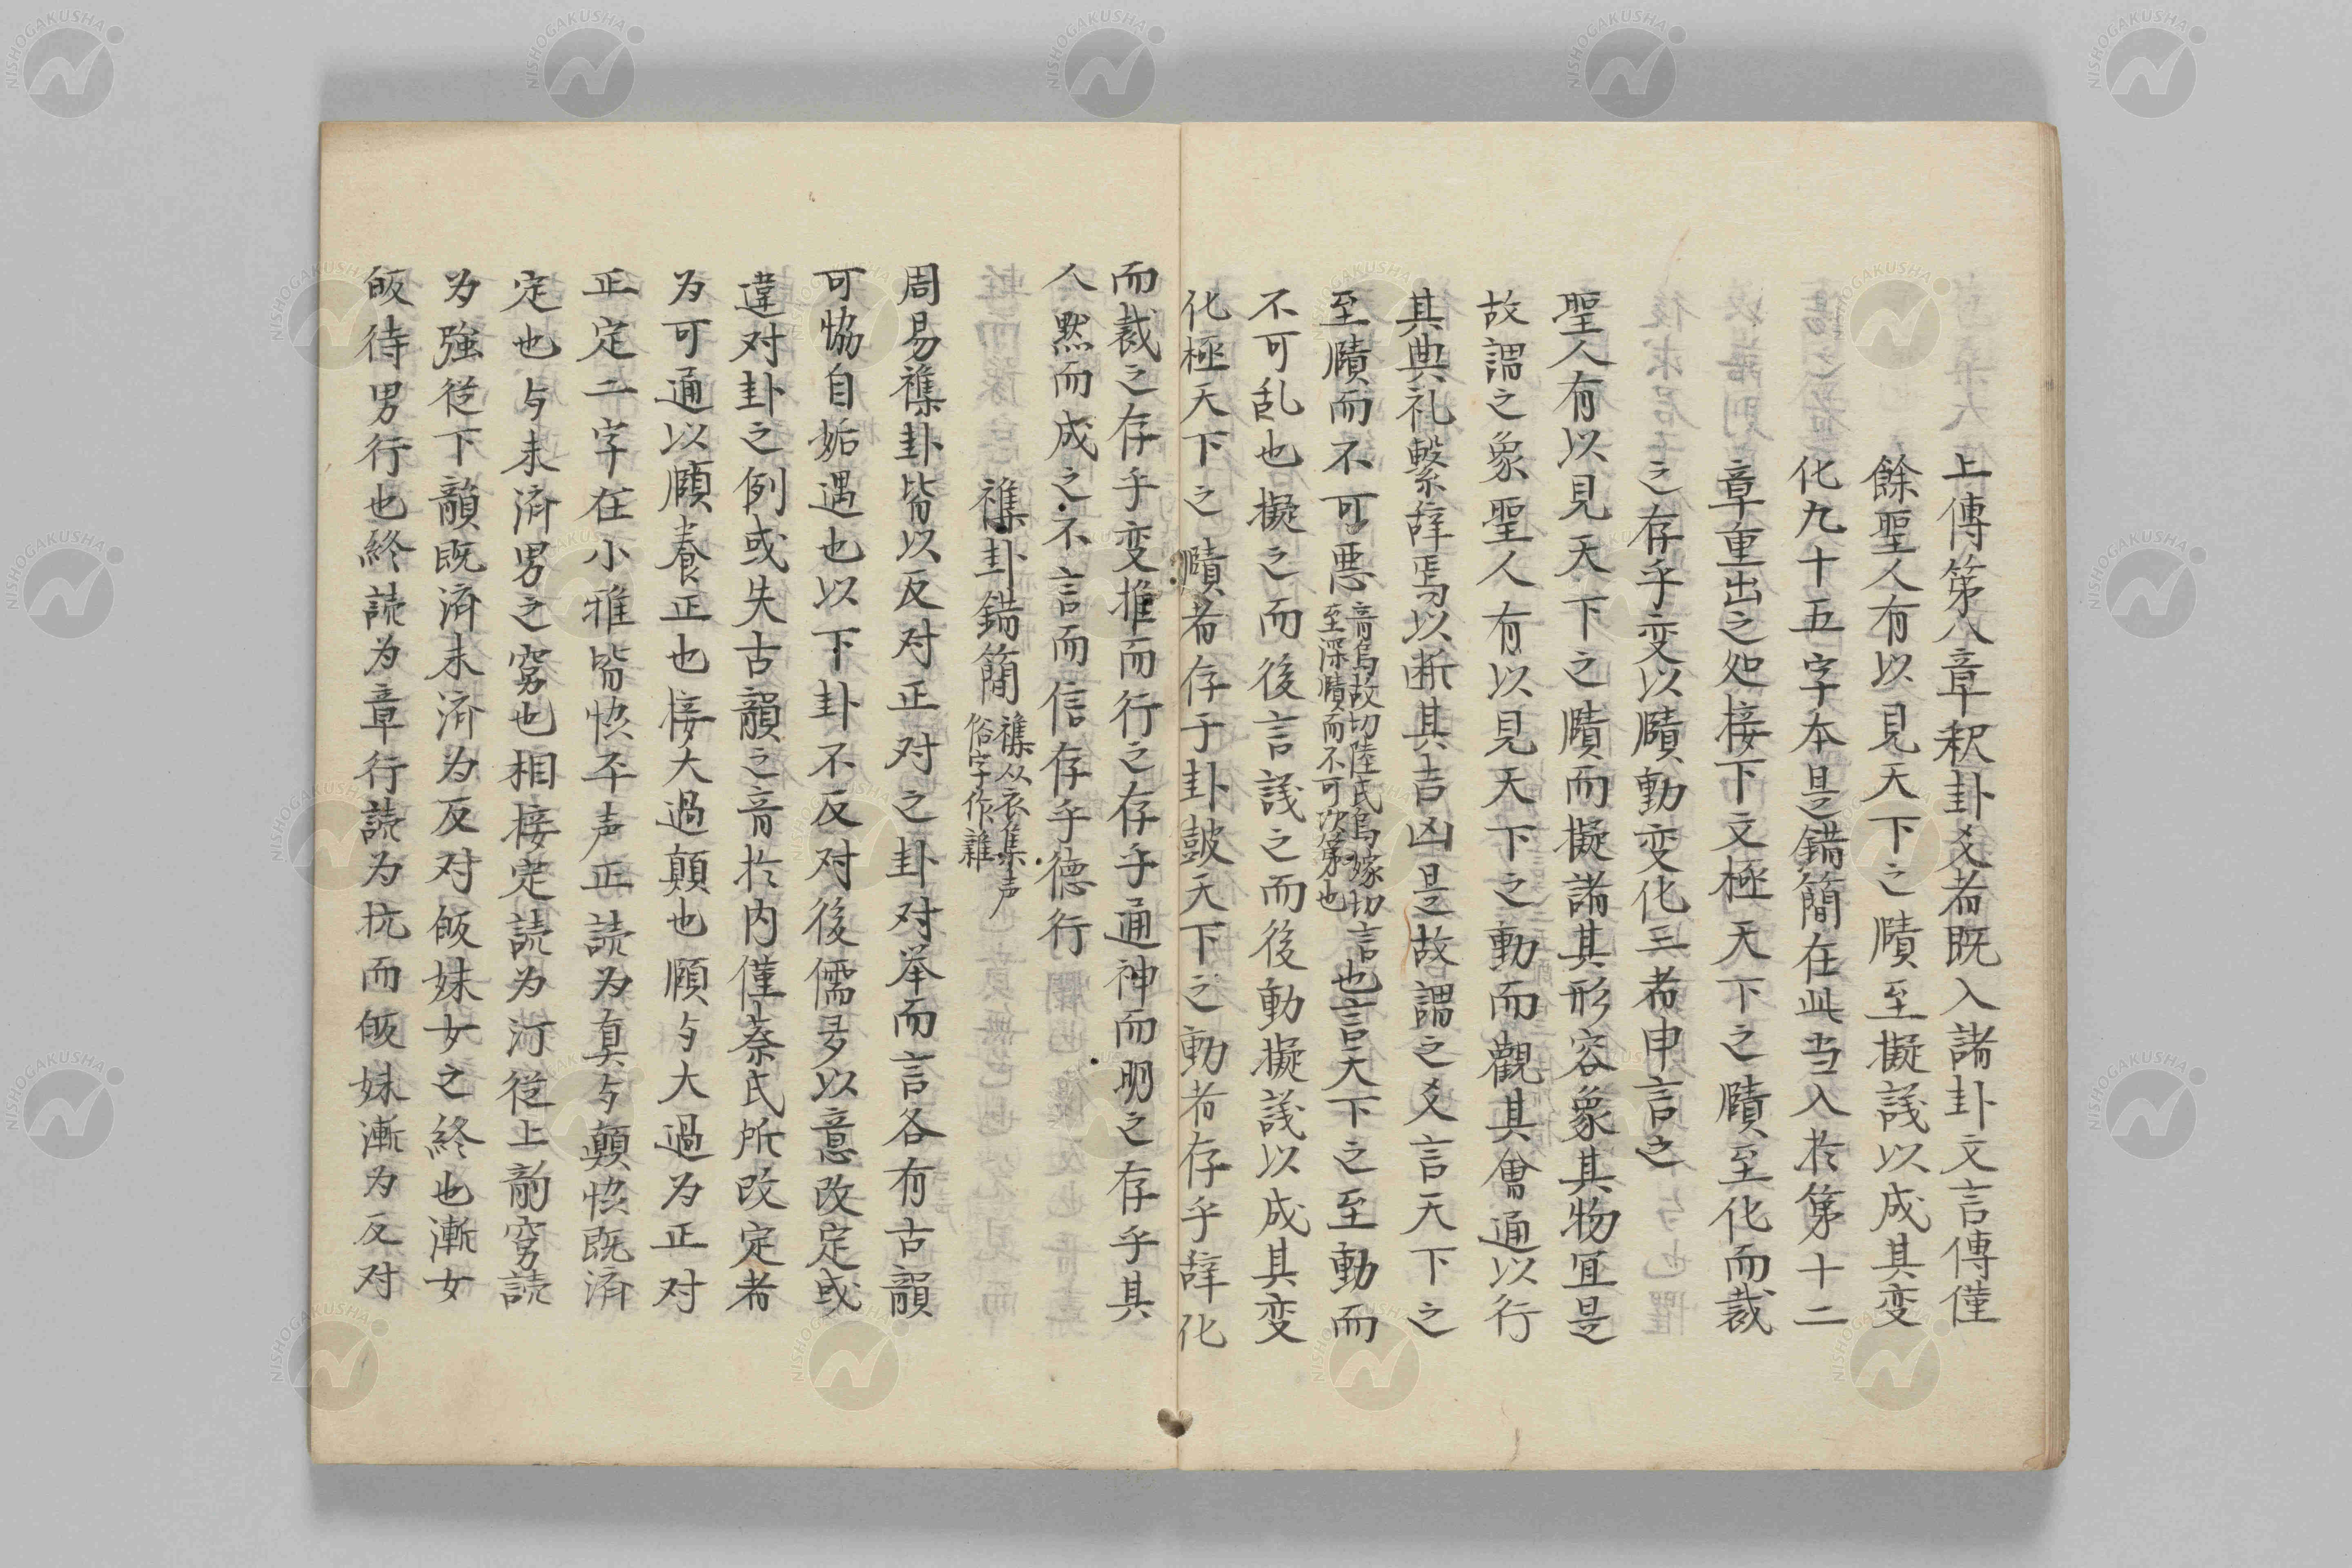 上傳第八章釈卦爻者既入諸卦文言傳僅
餘聖人有以見天下之賾至擬議以成其変
化九十五字本是錯簡在此当入於第十二
章重出之処接下文極天下之賾至化而裁
之存乎変以賾動変化三者申言之
聖人有以見天下之賾而擬諸其形容象其物宜是
故謂之象聖人有以見天下之動而觀其會通以行
其典礼繫辞焉以断其吉凶是故謂之爻言天下之
至賾而不可悪音烏故切陸氏烏嫁切
至深賾而不可次第也言也言天下之至動而
不可乱也擬之而後言議之而後動擬議以成其変
化極天下之賾者存乎卦鼓天下之動者存乎辞化
而裁之存乎変推而行之存乎通神而明之存乎其
人黙而成之不言而信存乎德行
襍卦錯簡襍从衣集声
俗字作雜
周易襍卦皆以反対正対之卦対举而言各有古韻
可恊自姤遇也以下卦不反対後儒多以意改定或
違対卦之例或失古韻之音於内僅蔡氏所改定者
为可通以頤養正也接大過顛也頤与大過为正対
正定二字在小雅皆恊平声正読为真与顛恊既済
定也与未済男之窮也相接定読为汀従上韵窮読
为強従下韻既済未済为反対皈妹女之終也漸女
皈待男行也終読为章行読为抗而皈妹漸为反対